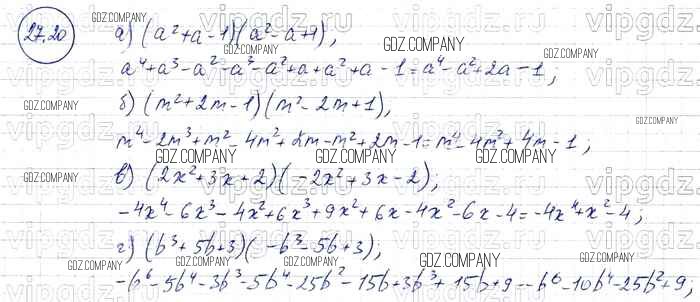 27.20
а) (a²+a-1)(a²-a+1),
a⁴+a³-a²-a³-a²+a+a²+a-1=a⁴-a²+2a-1;
б) (m²+2m-1)(m²-2m+1),
m⁴-2m³+m²-4m²+2m-m²+2m-1=m⁴-4m²+4m-1;
в) (2x²+3x+2)(-2x²+3x-2),
-4x⁴-6x³-4x²+6x³+9x²+6x-4x²-6x-4=-4x⁴+x²-4;
г) (b³+5b+3)(-b³-5b+3);
-b⁶-5b⁴-3b³-5b⁴-25b²-15b+3b³+15b+9=-b⁶-10b⁴-25b²+9,
GDZ.COMPANY
GDZ.COMPANY
GDZ.COMPANY
GDZ.COMPANY
GDZ.COMPANY
GDZ.COMPANY
GDZ.COMPANY
GDZ.COMPANY
GDZ.COMPANY
GDZ.COMPANY
GDZ.COMPANY
GDZ.COMPANY
vipgdz.ru
vipgdz.ru
vipgdz.ru
vipgdz.ru